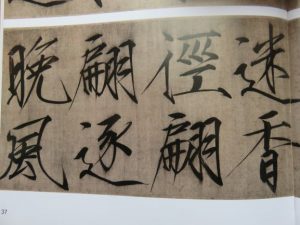 迷香
徑翩
翩逐
晚風
37